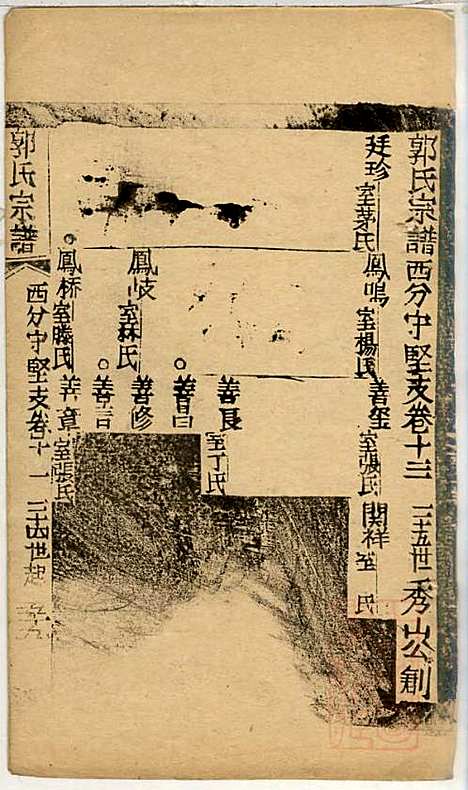 郭氏宗譜 西分守堅支卷十三 二十五世 秀山公創
廷珍 室茅氏 鳳鳴 室楊氏 善璽 室張氏 開祥 室 氏
善長 室丁氏
善昌
鳳岐 室林氏 善修
善言
鳳橋 室滕氏 善章 室張氏
郭氏宗譜 西分守堅支卷十一 二十四世起